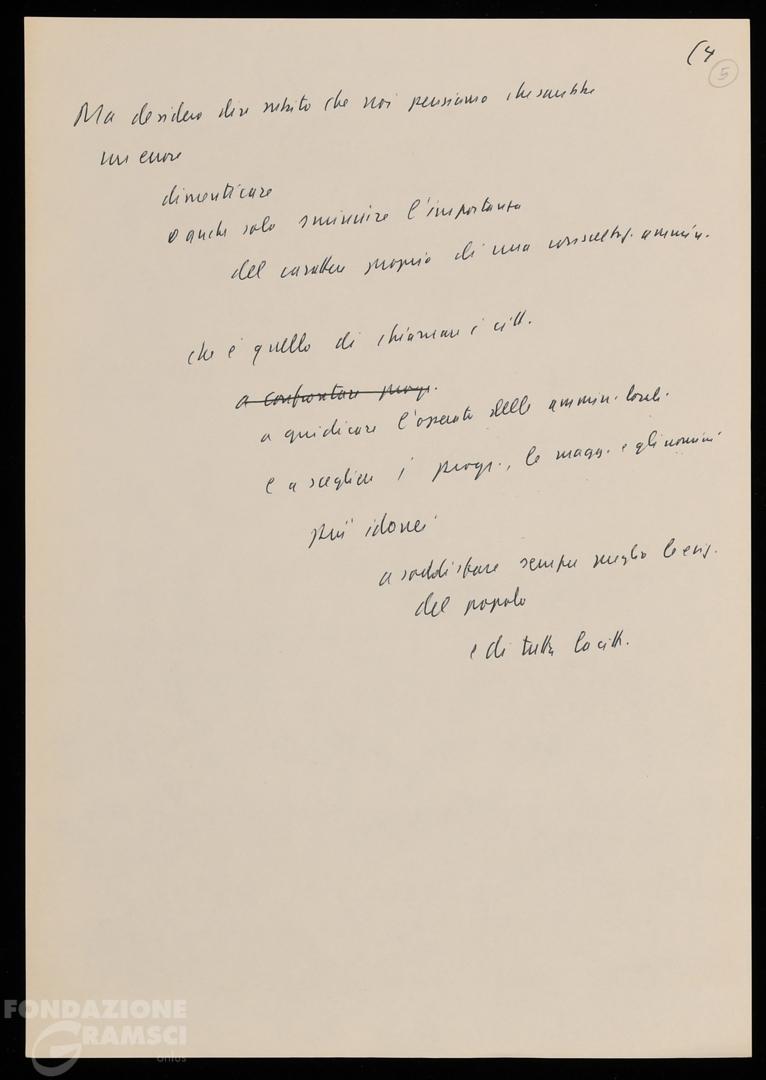 (4
5
Ma desidero dire subito che noi pensiamo che sarebbe
un errore
dimenticare
o anche solo sminuire l'importanza
del carattere proprio di una consultaz. ammin.
che è quello di chiamare i citt.
a confrontare progr.
a giudicare l'operato delle ammin. locali.
e a scegliere i progr., le magg. e gli uomini
più idonei
a soddisfare sempre meglio le esig.
del popolo
e di tutta la citt.
FONDAZIONE
GRAMSCI
onlus